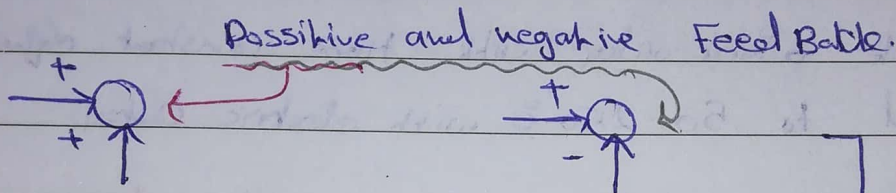 Possitive and negative Feed Back.
+
+
+
-